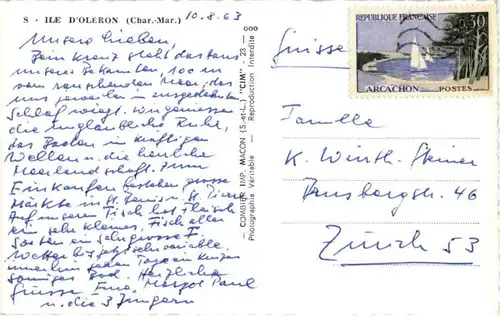 S - ILE D'OLÉRON (Char.-Mar.) 10.8.63
Unsere Lieben,
Beim Kreuz steht das Haus
unserer Bekannten, 100 m
vom rauschenden Meer, das
uns jeweilen in
Schlaf wiegt. Wir geniessen
die unglaubliche Ruhe,
das Baden in kräftigen
Wellen u. die herrliche
Meerlandschaft. Zum
Einkaufen bestehen grosse
Märkte in St. Denis u. St. Pierre
Auf unserem Tisch hat Fleisch
ein sehr kleines, Fisch aller
Sorten ein sehr grosses F
Wetter bis jetzt sehr variable.
immerhin jeden Tag ein kurzes
sonniges Bad. Herzliche
Grüsse Eure Margot Paul
u. die 3 Jungen
COMBIER IMP. MACON (S.-et-L.) "CIM" - 23
Photographie Véritable — Reproduction Interdite
Suisse
REPUBLIQUE FRANÇAISE 0,30
ARCACHON POSTES
Familie
K. Wirth-Steiner
46
Zürich 53